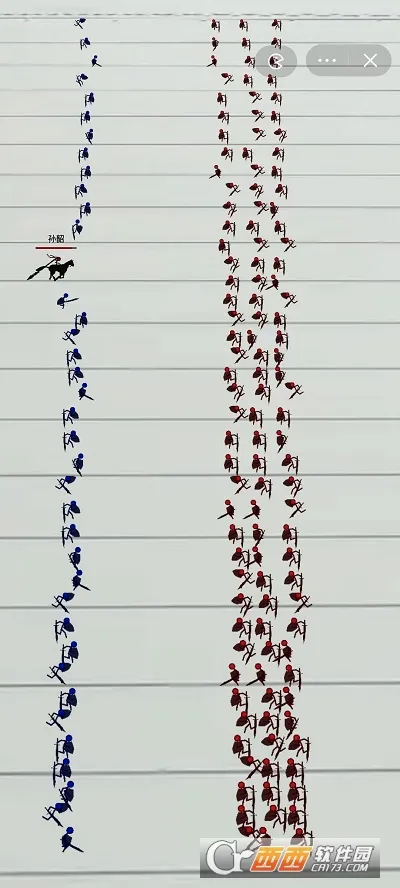 孙韶
西西软件园
CR173.COM